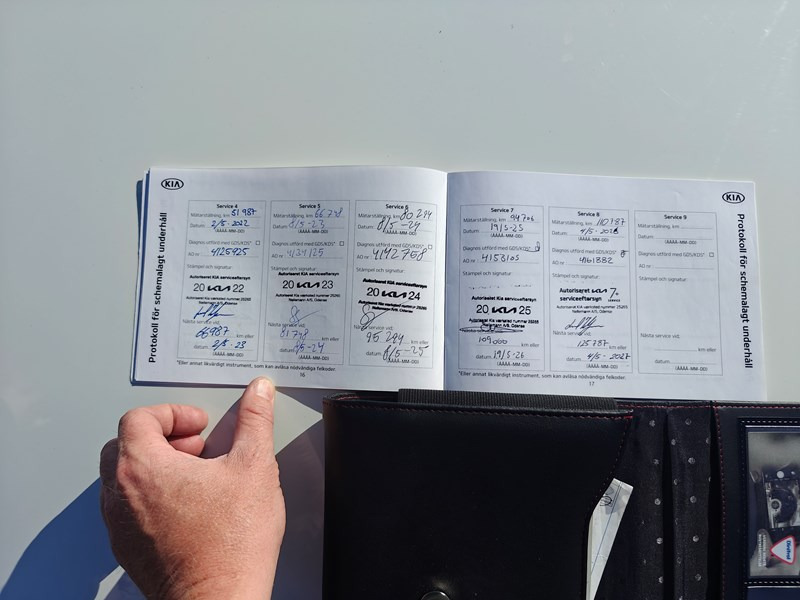 KIA
Protokoll för schemalagt underhåll
Service 4
Mätarställning, km 51 987
Datum 2/5-2022
(ÅÅÅÅ-MM-DD)
Diagnos utförd med GDS/KDS*
AO nr 4125925
Stämpel och signatur:
Autoriseret Kia serviceeftersyn
20 KIA 22
Nästa service vid:
66987 km eller
datum 2/5-23
(ÅÅÅÅ-MM-DD)
Service 5
Mätarställning, km 66 748
Datum 8/5-23
(ÅÅÅÅ-MM-DD)
Diagnos utförd med GDS/KDS*
AO nr
Stämpel och signatur:
Autoriseret KIA serviceeftersyn
20 KIA 23
Nästa service vid:
81748 km eller
datum 8/5-24
(ÅÅÅÅ-MM-DD)
Service 6
Mätarställning, km 80 294
Datum 8/5-24
(ÅÅÅÅ-MM-DD)
Diagnos utförd med GDS/KDS*
AO nr 4142758
Stämpel och signatur:
Autoriseret KIA serviceeftersyn
20 KIA 24
Nästa service vid:
95 294 km eller
datum 8/5-25
(ÅÅÅÅ-MM-DD)
*Eller annat likvärdigt instrument, som kan avläsa nödvändiga felkoder.
16
KIA
Protokoll för schemalagt underhåll
Service 7
Mätarställning, km 94706
Datum 19/5-25
(ÅÅÅÅ-MM-DD)
Diagnos utförd med GDS/KDS*
AO nr 4153105
Stämpel och signatur:
Autoriseret KIA serviceeftersyn
20 KIA 25
Nästa service vid:
109000 km eller
datum 19/5-26
(ÅÅÅÅ-MM-DD)
Service 8
Mätarställning, km 110787
Datum 4/5-2026
(ÅÅÅÅ-MM-DD)
Diagnos utförd med GDS/KDS*
AO nr 4161882
Stämpel och signatur:
Autoriseret KIA
serviceeftersyn
Nästa service vid:
125787 km eller
datum 4/5-2027
(ÅÅÅÅ-MM-DD)
Service 9
Mätarställning, km
Datum
(ÅÅÅÅ-MM-DD)
Diagnos utförd med GDS/KDS*
AO nr
Stämpel och signatur:
Nästa service vid:
km eller
datum
(ÅÅÅÅ-MM-DD)
*Eller annat likvärdigt instrument, som kan avläsa nödvändiga felkoder.
17